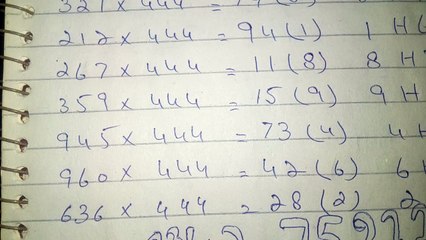 321 × 444 =
212 × 444 = 94 (1) 1 H
267 × 444 = 11 (8) 8 H
359 × 444 = 15 (9) 9 H
945 × 444 = 73 (4) 4 H
960 × 444 = 42 (6) 6
636 × 444 = 28 (2) 2